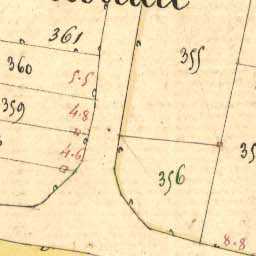 361
355
360
5.5
359
4.8
4.6
356
8.8